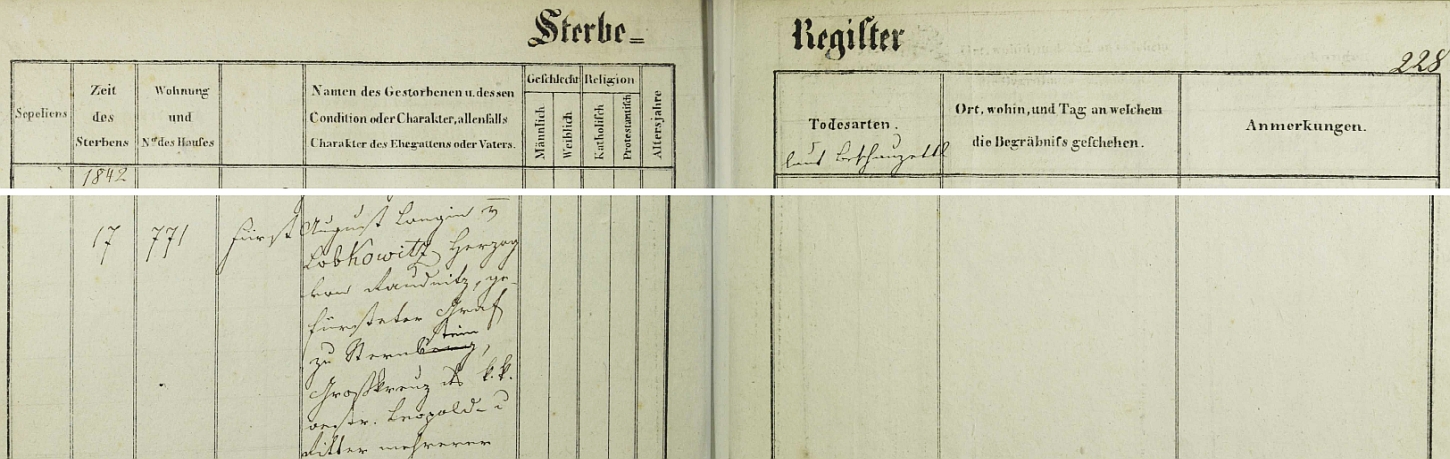 Sterbe=
Register
228
Sepeliens
Zeit
des
Sterbens
Wohnung
und
Nro des Hauses
Namen des Gestorbenen u. dessen
Condition oder Charakter, allenfalls
Charakter des Ehegattens oder Vaters.
Geschlecht
Männlich
Weiblich
Religion
Katholisch
Protestantisch
Altersjahre
Todesarten.
laut Beschauzettl
Ort, wohin, und Tag an welchem
die Begräbniss geschehen.
Anmerkungen.
1842
17 771 Fürst August Longin v
Lobkowitz, Herzog
von Raudnitz, ge-
fürsteter Graf
zu Sternberg stein,
Großkreuz des k. k.
oestr. Leopold- u
Ritter mehrerer